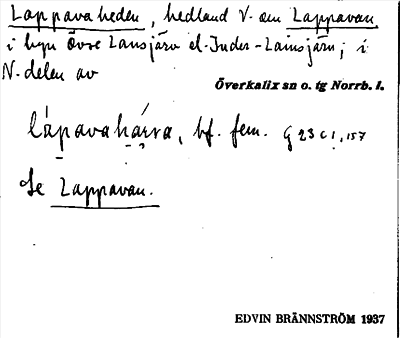 Lappavaheden, hedland V. om Lappavan
i byn Övre Lansjärv el. Inder-Lainsjärv; i
N. delen av
Överkalix sn o. tg Norrb. l.
lápavahárva, bf. fem. G 23 c 1, 157
Se Lappavan.
EDVIN BRÄNNSTRÖM 1937